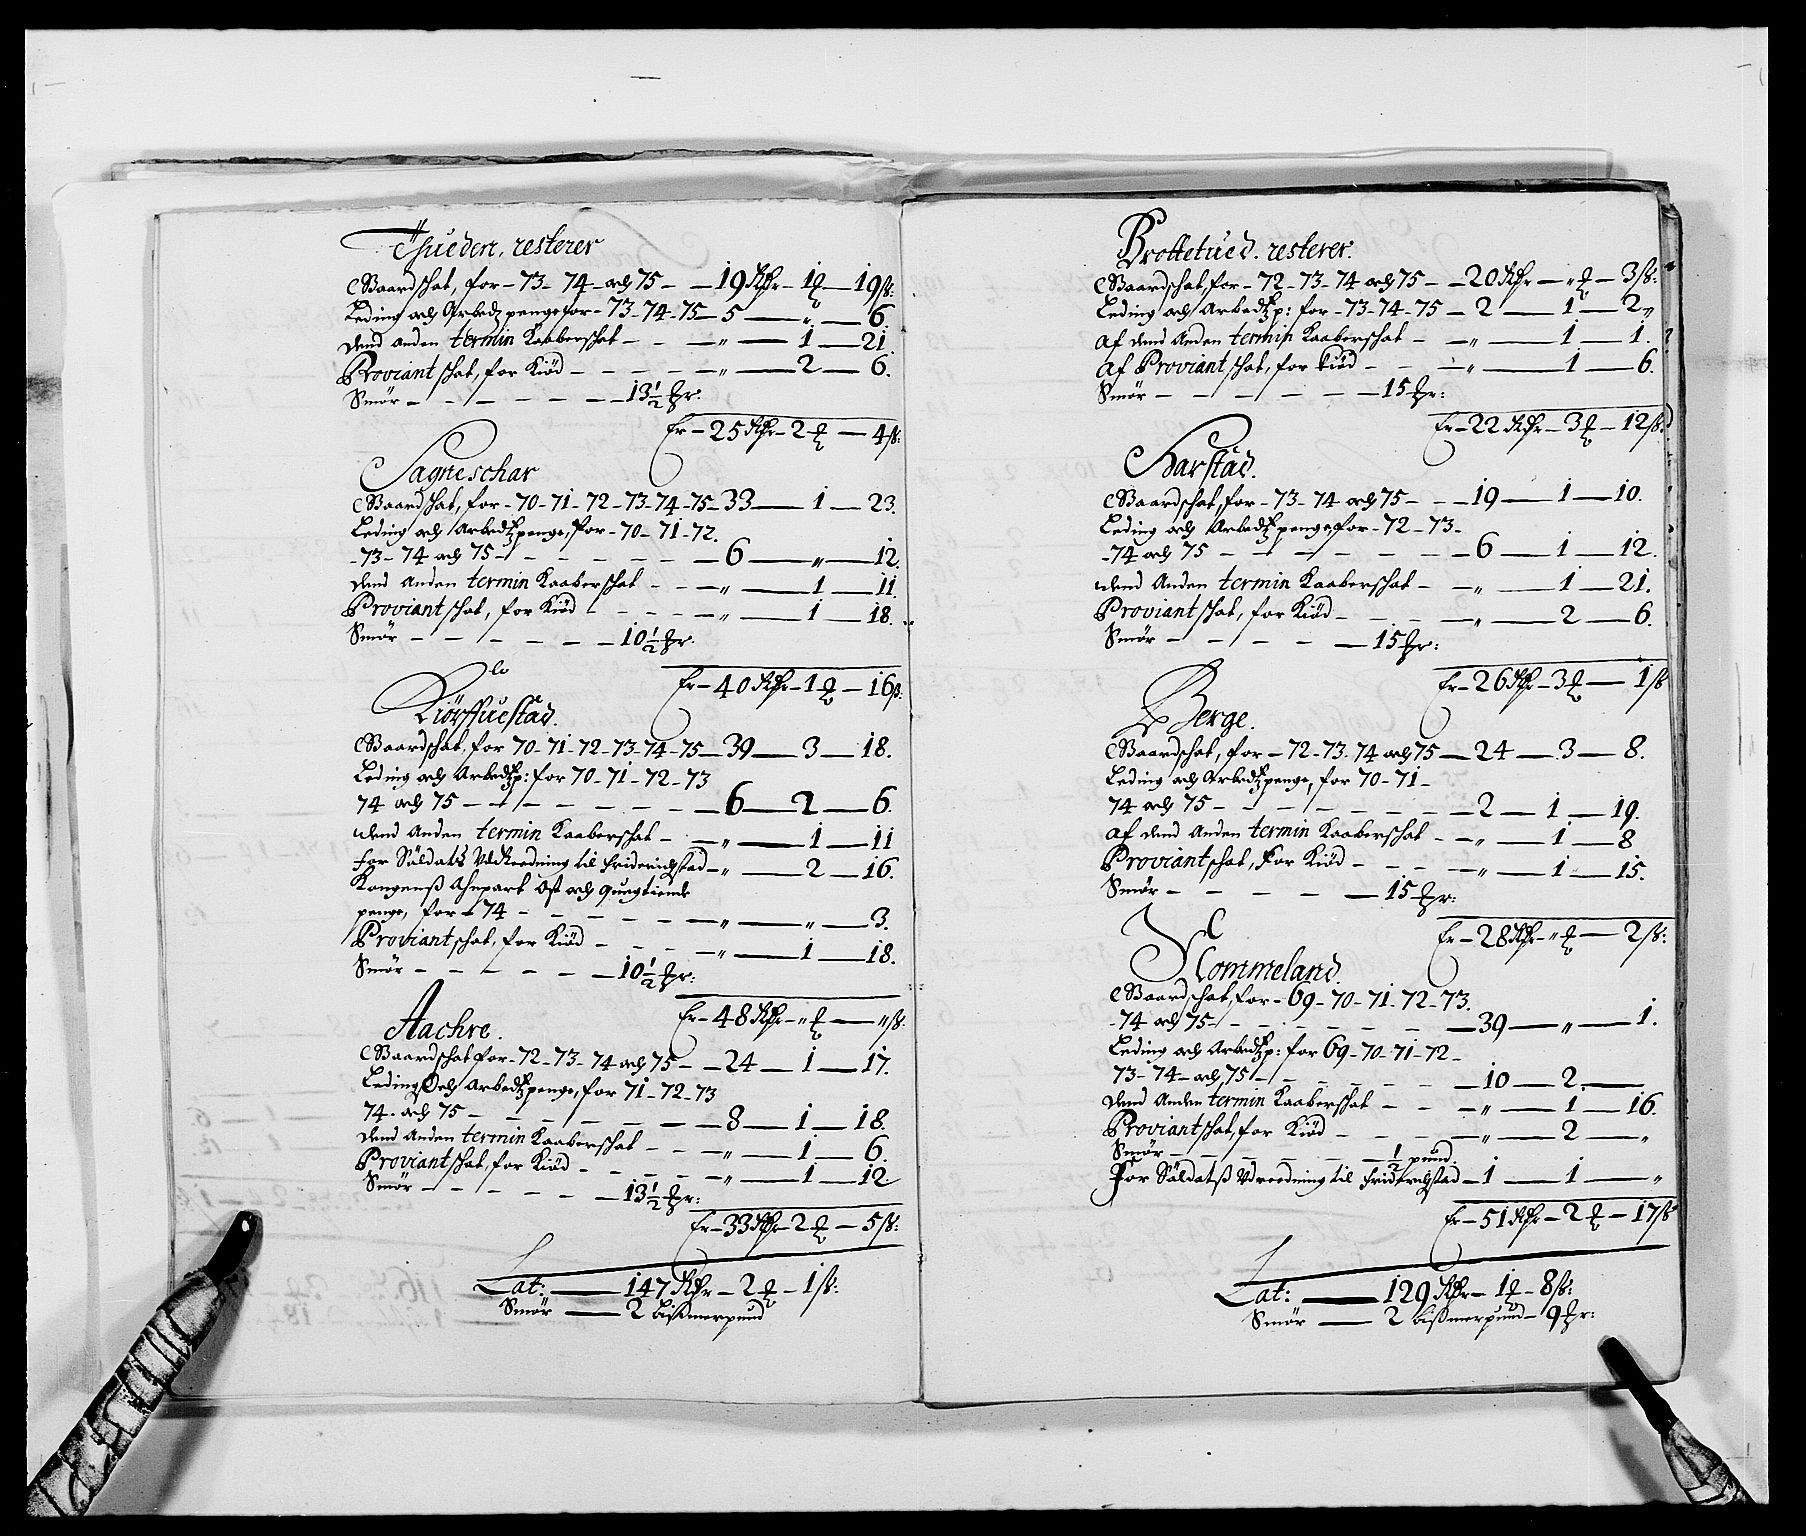 Thueden, resterer
Baardschat, for - 73 - 74 - och 75 - - 19 Rdr - 1 ȹ - 19 ß:
Leding och Arbedz penge for - 73 - 74 - 75 - 5 - „ - 6.
dend anden termin Kaaberschat - - - „ - 1 - 21
Proviant schat, for Kiød - - - - - „ - 2 - 6.
Smør - - - - - - 13½ pr:
Er - 25 Rdr - 2 ȹ - 4 ß:
Sagneschar
Baardschat, for - 70 - 71 - 72 - 73 - 74 - 75 - 33 - 1 - 23.
Leding och Arbedtz penge, for - 70 - 71 - 72.
- 73 - 74 och 75 - - - - - - 6 - „ - 12.
dend anden termin Kaaberschat - - - „ - 1 - 11
Proviant schat, for Kiød - - - - - „ - 1 - 18.
Smør - - - - - - 10½ pr:
Er - 40 Rdr - 1 ȹ - 16 ß.
Kiørffuestad.
Baardschat, for 70 - 71 - 72 - 73 - 74 - 75 - 39 - 3 - 18.
Leding och Arbedtz p: for 70 - 71 - 72 - 73
74 och 75 - - - - - - - 6 - 2 - 6.
dend anden termin Kaaberschat - - „ - 1 - 11
for Soldatz Udreedning til Friderichstad - „ - 2 - 16.
Kongenß Anpart Ost och Qungtiende
penge, for - 74 - - - - - - „ - „ - 3.
Proviant schat, for Kiød - - - - „ - 1 - 18.
Smør - - - - - - 10½ pr:
Er - 48 Rdr - „ ȹ - „ ß:
Aachre.
Baardschat for - 72 - 73 - 74 och 75 - - 24 - 1 - 17.
Leding Och Arbedtz penge, for 71 - 72 - 73
74 - och 75 - - - - - - - 8 - 1 - 18.
dend anden termin Kaaberschat - - - „ - 1 - 6.
Proviant schat, for Kiød - - - - - „ - 1 - 12.
Smør - - - - - - 13½ pr:
Er - 33 Rdr - 2 ȹ - 5 ß:
Lat: - 147 Rdr - 2 ȹ - 1 ß:
Smør - 2 bißmerpund
Brottetued. resterer.
Baardschat, for - 72 - 73 - 74 och 75 - - 20 Rdr - „ ȹ - 3 ß:
Leding och Arbedtz p: for - 73 - 74 - 75 - 2 - 1 - 2 „
Af dend Anden termin Kaaberschat - - „ - 1 - 1.
Af Proviant schat, for Kiød - - - „ - 1 - 6.
Smør - - - - - - 15 pr:
Er - 22 Rdr - 3 ȹ - 12 ß.
Harstad.
Baardschat, for - 73 - 74 och 75 - - - 19 - 1 - 10.
Leding och Arbedtz penge, for - 72 - 73 -
- 74 och 75 - - - - - - - 6 - 1 - 12.
dend Anden termin Kaaberschat - - „ - 1 - 21.
Proviant schat, for Kiød - - - - „ - 2 - 6.
Smør - - - - - - 15 pr:
Er - 26 Rdr - 3 ȹ - 1 ß
Berge.
Baardschat, for - 72 - 73 - 74 och 75 - 24 - 3 - 8.
Leding och Arbedtz penge, for 70 - 71 -
74 och 75 - - - - - - - 2 - 1 - 19.
Af dend Anden termin Kaaberschat - - „ - 1 - 8
Proviant schat, For Kiød - - - - „ - 1 - 15.
Smør - - - - - - 15 pr:
Er - 28 Rdr - „ ȹ - 2 ß:
Hommeland.
Baardschat, for - 69 - 70 - 71 - 72 - 73.
- 74 och 75 - - - - - - - 39 - „ - 1.
Leding och Arbedtz p: for 69 - 70 - 71 - 72 -
73 - 74 - och 75 - - - - - - 10 - 2. -
dend Anden termin Kaaberschat - - - „ - 1 - 16.
Proviant schat, for Kiød - - - - „ - 2 - „
Smør - - - - - - ½ pund.
For Soldatß Udreedning til Fridrichstad - 1 - 1 - „
Er - 51 Rdr - 2 ȹ - 17 ß
Lat: - 129 Rdr - 1 ȹ - 8 ß:
Smør - 2 bißmerpund - 9 pr: